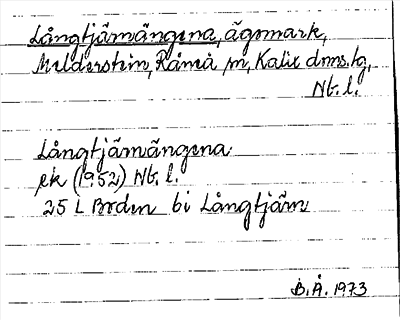 Långtjärnängena, ägomark,
Milderstein, Råneå sn, Kalix dms.tg,
Nb. l.
Långtjärnängena
ek (1952) Nb. l.
25 L Boden bi Långtjärn
B.Å. 1973